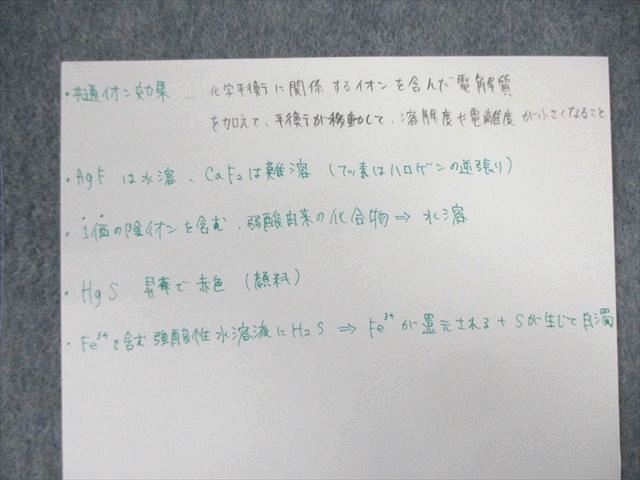 ・共通イオン効果 … 化学平衡に関係するイオンを含んだ電解質
を加えて、平衡が移動して、溶解度や電離度が小さくなること
・AgFは水溶、CaF₂は難溶（フッ素はハロゲンの逆張り）
・1価の陰イオンを含む、弱酸由来の化合物⇒水溶
・HgS 昇華で赤色（顔料）
・Fe³⁺を含む強酸性水溶液にH₂S ⇒ Fe³⁺が還元される + Sが生じて白濁